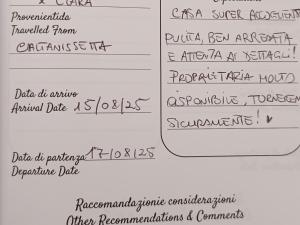 x CLARA
Provenientida
Travelled From
CALTANISSETTA
Data di arrivo
Arrival Date 15/08/25
Data di partenza 17/08/25
Departure Date
CASA SUPER ACCOGLIENTE
PULITA, BEN ARREDATA
E ATTENTA AI DETTAGLI!
PROPRIETARIA MOLTO
DISPONIBILE, TORNEREMO
SICURAMENTE!
Raccomandazionie considerazioni
Other Recommendations & Comments